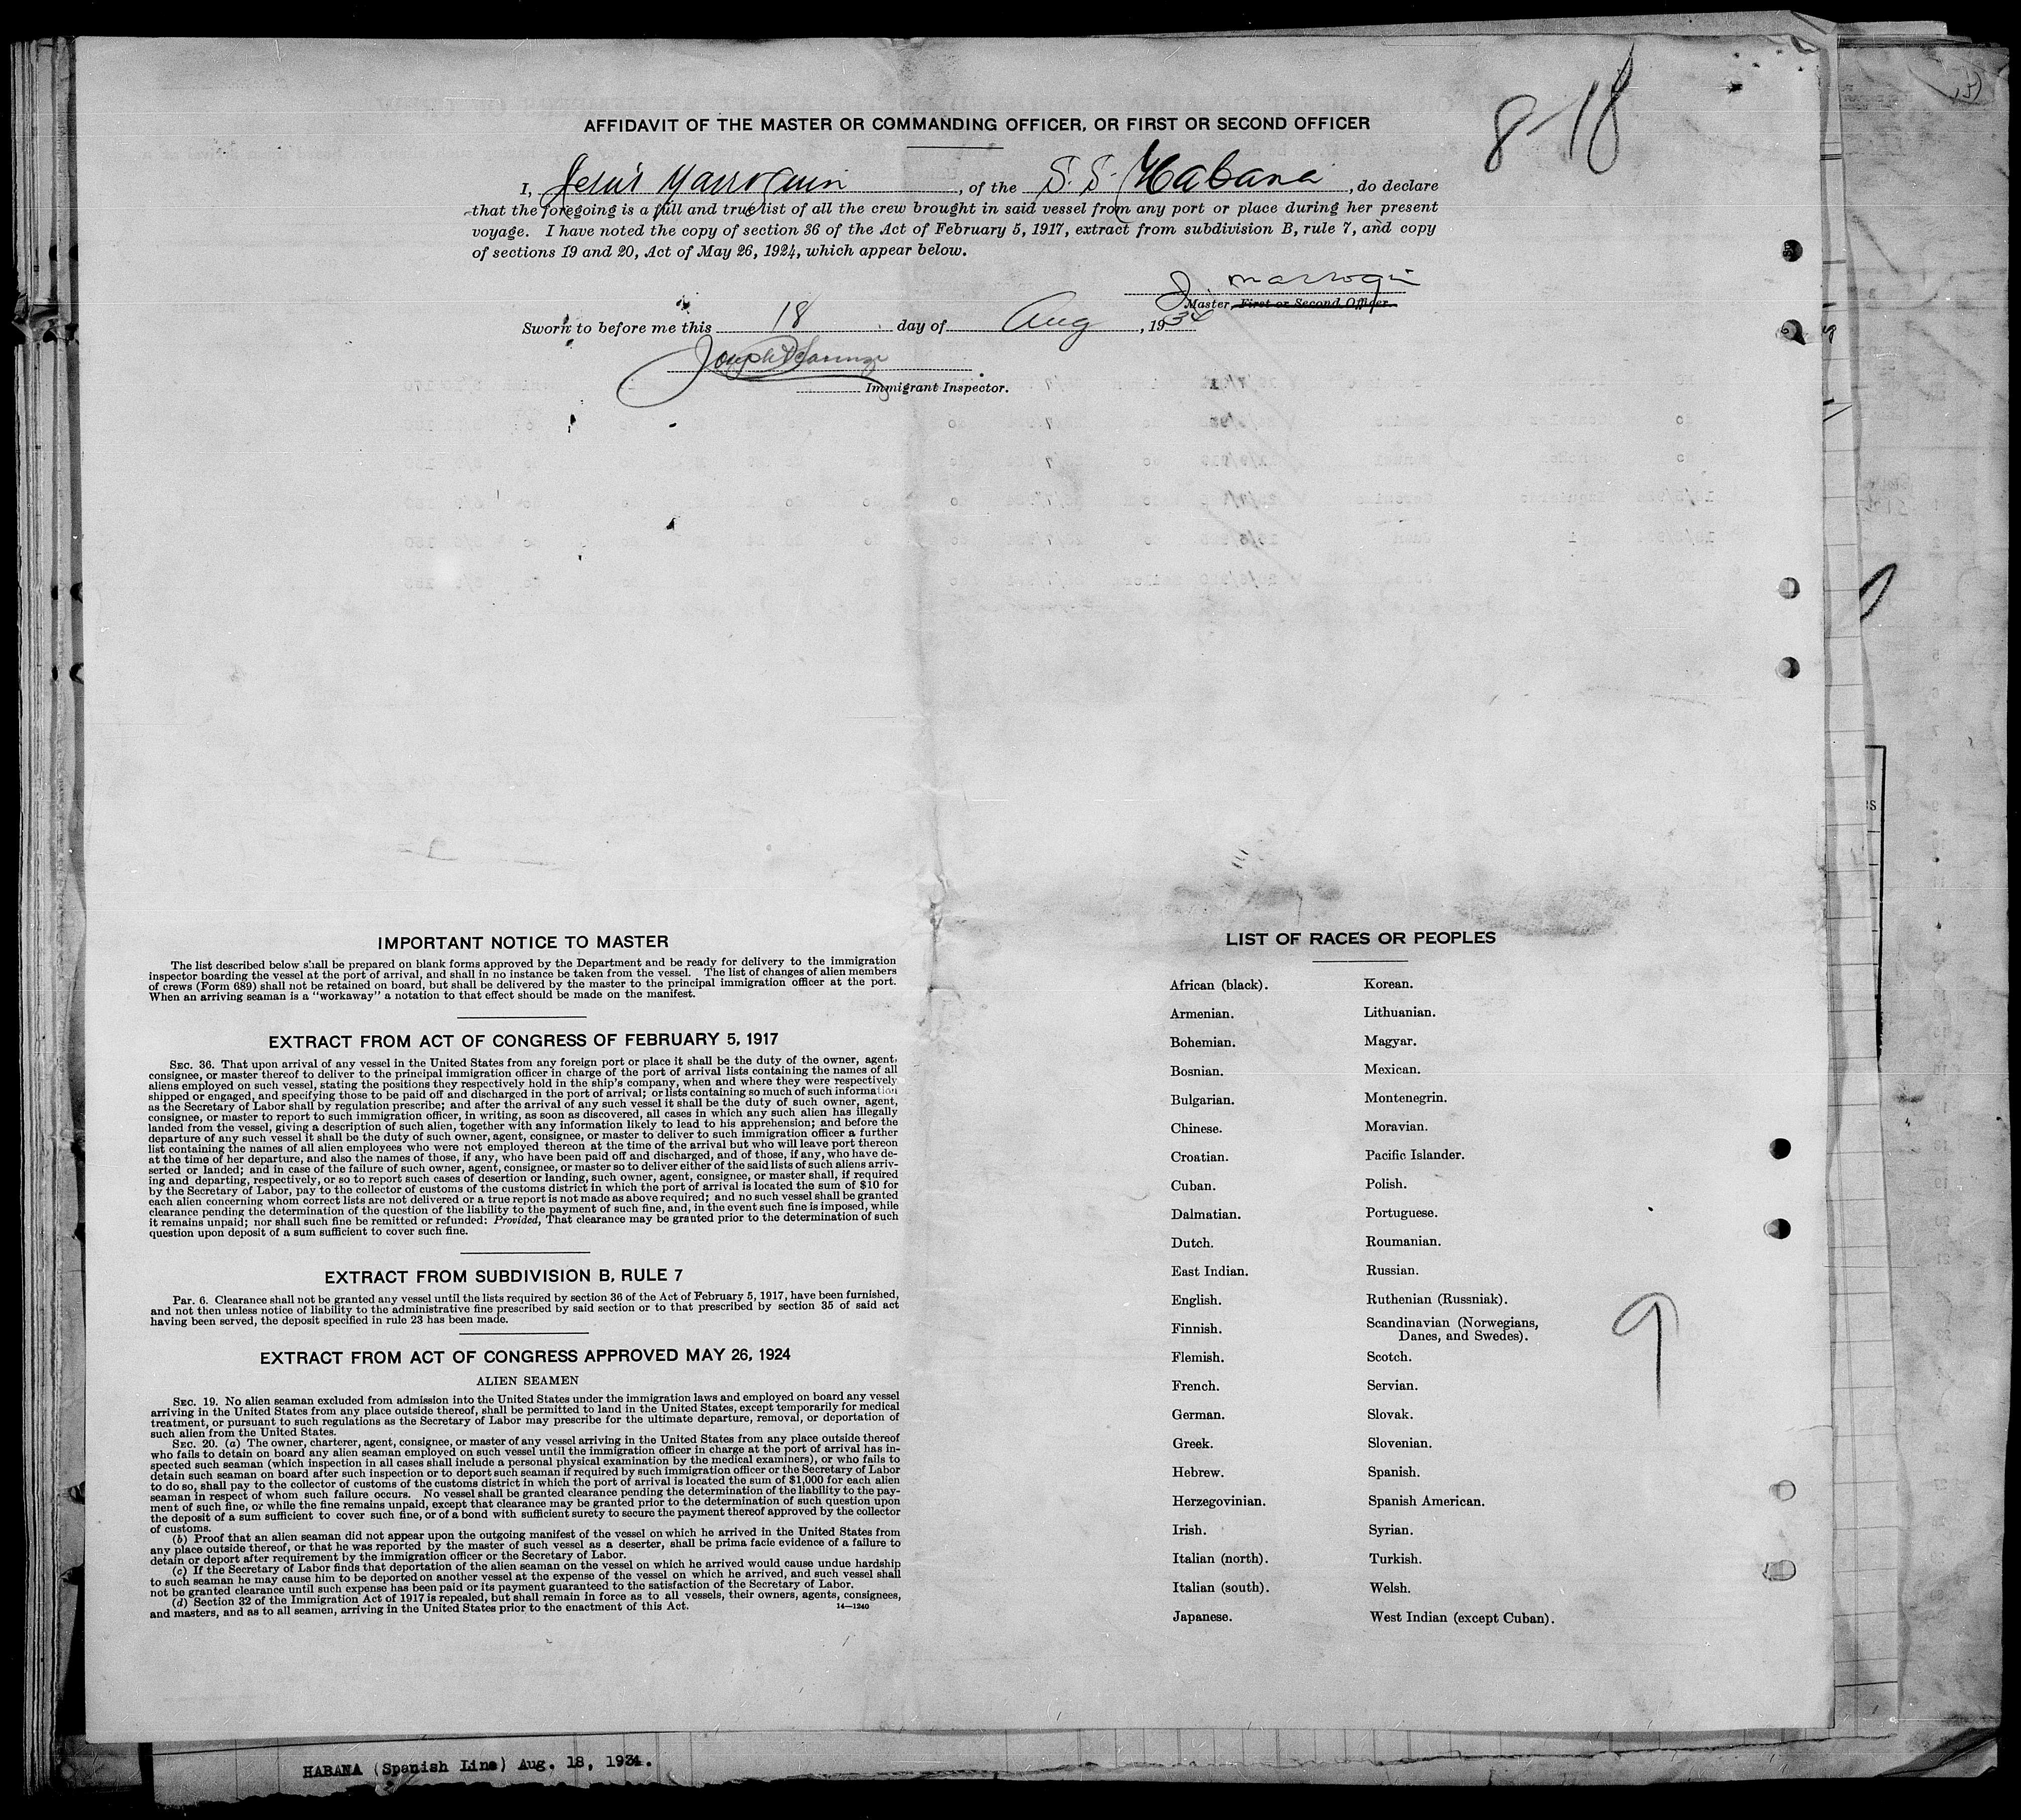 8-18
AFFIDAVIT OF THE MASTER OR COMMANDING OFFICER, OR FIRST OR SECOND OFFICER
I, Jesús Marroquin, of the S.S. Habana, do declare
that the foregoing is a full and true list of all the crew brought in said vessel from any port or place during her present
voyage. I have noted the copy of section 36 of the Act of February 5, 1917, extract from subdivision B, rule 7, and copy
of sections 19 and 20, Act of May 26, 1924, which appear below.
J. Marroqin
Master, First or Second Officer.
Sworn to before me this 18 day of Aug, 1934
Joseph
Immigrant Inspector.
IMPORTANT NOTICE TO MASTER
The list described below shall be prepared on blank forms approved by the Department and be ready for delivery to the immigration
inspector boarding the vessel at the port of arrival, and shall in no instance be taken from the vessel. The list of changes of alien members
of crews (Form 689) shall not be retained on board, but shall be delivered by the master to the principal immigration officer at the port.
When an arriving seaman is a "workaway" a notation to that effect should be made on the manifest.
EXTRACT FROM ACT OF CONGRESS OF FEBRUARY 5, 1917
SEC. 36. That upon arrival of any vessel in the United States from any foreign port or place it shall be the duty of the owner, agent,
consignee, or master thereof to deliver to the principal immigration officer in charge of the port of arrival lists containing the names of all
aliens employed on such vessel, stating the positions they respectively hold in the ship's company, when and where they were respectively
shipped or engaged, and specifying those to be paid off and discharged in the port of arrival; or lists containing so much of such information
as the Secretary of Labor shall by regulation prescribe; and after the arrival of any such vessel it shall be the duty of such owner, agent,
consignee, or master to report to such immigration officer, in writing, as soon as discovered, all cases in which any such alien has illegally
landed from the vessel, giving a description of such alien, together with any information likely to lead to his apprehension; and before the
departure of any such vessel it shall be the duty of such owner, agent, consignee, or master to deliver to such immigration officer a further
list containing the names of all alien employees who were not employed thereon at the time of the arrival but who will leave port thereon
at the time of her departure, and also the names of those, if any, who have been paid off and discharged, and of those, if any, who have de-
serted or landed; and in case of the failure of such owner, agent, consignee, or master so to deliver either of the said lists of such aliens arriv-
ing and departing, respectively, or so to report such cases of desertion or landing, such owner, agent, consignee, or master shall, if required
by the Secretary of Labor, pay to the collector of customs of the customs district in which the port of arrival is located the sum of $10 for
each alien concerning whom correct lists are not delivered or a true report is not made as above required; and no such vessel shall be granted
clearance pending the determination of the question of the liability to the payment of such fine, and, in the event such fine is imposed, while
it remains unpaid; nor shall such fine be remitted or refunded: Provided, That clearance may be granted prior to the determination of such
question upon deposit of a sum sufficient to cover such fine.
EXTRACT FROM SUBDIVISION B, RULE 7
Par. 6. Clearance shall not be granted any vessel until the lists required by section 36 of the Act of February 5, 1917, have been furnished,
and not then unless notice of liability to the administrative fine prescribed by said section or to that prescribed by section 35 of said act
having been served, the deposit specified in rule 23 has been made.
EXTRACT FROM ACT OF CONGRESS APPROVED MAY 26, 1924
ALIEN SEAMEN
SEC. 19. No alien seaman excluded from admission into the United States under the immigration laws and employed on board any vessel
arriving in the United States from any place outside thereof, shall be permitted to land in the United States, except temporarily for medical
treatment, or pursuant to such regulations as the Secretary of Labor may prescribe for the ultimate departure, removal, or deportation of
such alien from the United States.
SEC. 20. (a) The owner, charterer, agent, consignee, or master of any vessel arriving in the United States from any place outside thereof
who fails to detain on board any alien seaman employed on such vessel until the immigration officer in charge at the port of arrival has in-
spected such seaman (which inspection in all cases shall include a personal physical examination by the medical examiners), or who fails to
detain such seaman on board after such inspection or to deport such seaman if required by such immigration officer or the Secretary of Labor
to do so, shall pay to the collector of customs of the customs district in which the port of arrival is located the sum of $1,000 for each alien
seaman in respect of whom such failure occurs. No vessel shall be granted clearance pending the determination of the liability to the pay-
ment of such fine, or while the fine remains unpaid, except that clearance may be granted prior to the determination of such question upon
the deposit of a sum sufficient to cover such fine, or of a bond with sufficient surety to secure the payment thereof approved by the collector
of customs.
(b) Proof that an alien seaman did not appear upon the outgoing manifest of the vessel on which he arrived in the United States from
any place outside thereof, or that he was reported by the master of such vessel as a deserter, shall be prima facie evidence of a failure to
detain or deport after requirement by the immigration officer or the Secretary of Labor.
(c) If the Secretary of Labor finds that deportation of the alien seaman on the vessel on which he arrived would cause undue hardship
to such seaman he may cause him to be deported on another vessel at the expense of the vessel on which he arrived, and such vessel shall
not be granted clearance until such expense has been paid or its payment guaranteed to the satisfaction of the Secretary of Labor.
(d) Section 32 of the Immigration Act of 1917 is repealed, but shall remain in force as to all vessels, their owners, agents, consignees,
and masters, and as to all seamen, arriving in the United States prior to the enactment of this Act.
14—1240
LIST OF RACES OR PEOPLES
African (black).
Armenian.
Bohemian.
Bosnian.
Bulgarian.
Chinese.
Croatian.
Cuban.
Dalmatian.
Dutch.
East Indian.
English.
Finnish.
Flemish.
French.
German.
Greek.
Hebrew.
Herzegovinian.
Irish.
Italian (north).
Italian (south).
Japanese.
Korean.
Lithuanian.
Magyar.
Mexican.
Montenegrin.
Moravian.
Pacific Islander.
Polish.
Portuguese.
Roumanian.
Russian.
Ruthenian (Russniak).
Scandinavian (Norwegians,
Danes, and Swedes).
Scotch.
Servian.
Slovak.
Slovenian.
Spanish.
Spanish American.
Syrian.
Turkish.
Welsh.
West Indian (except Cuban).
9
HABANA (Spanish Line) Aug. 18, 1934.